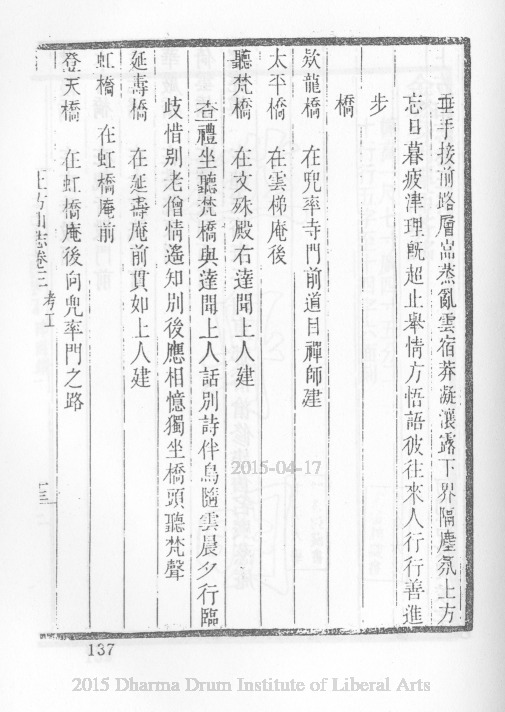 垂手接前路層嵓蒸亂雲宿莽凝瀼露下界隔塵氛上方
忘日暮疲津理旣超止舉情方悟語彼往來人行行善進
步
橋
欻龍橋　在兜率寺門前道目禪師建
太平橋　在雲梯庵後
聽梵橋　在文殊殿右達聞上人建
查禮坐聽梵橋與達聞上人話別詩伴鳥隨雲晨夕行臨
歧惜別老僧情遙知別後應相憶獨坐橋頭聽梵聲
延壽橋　在延壽庵前貫如上人建
虹橋　在虹橋庵前
登天橋　在虹橋庵後向兜率門之路
上方山志卷三　考工　十三
137
2015-04-17
2015 Dharma Drum Institute of Liberal Arts